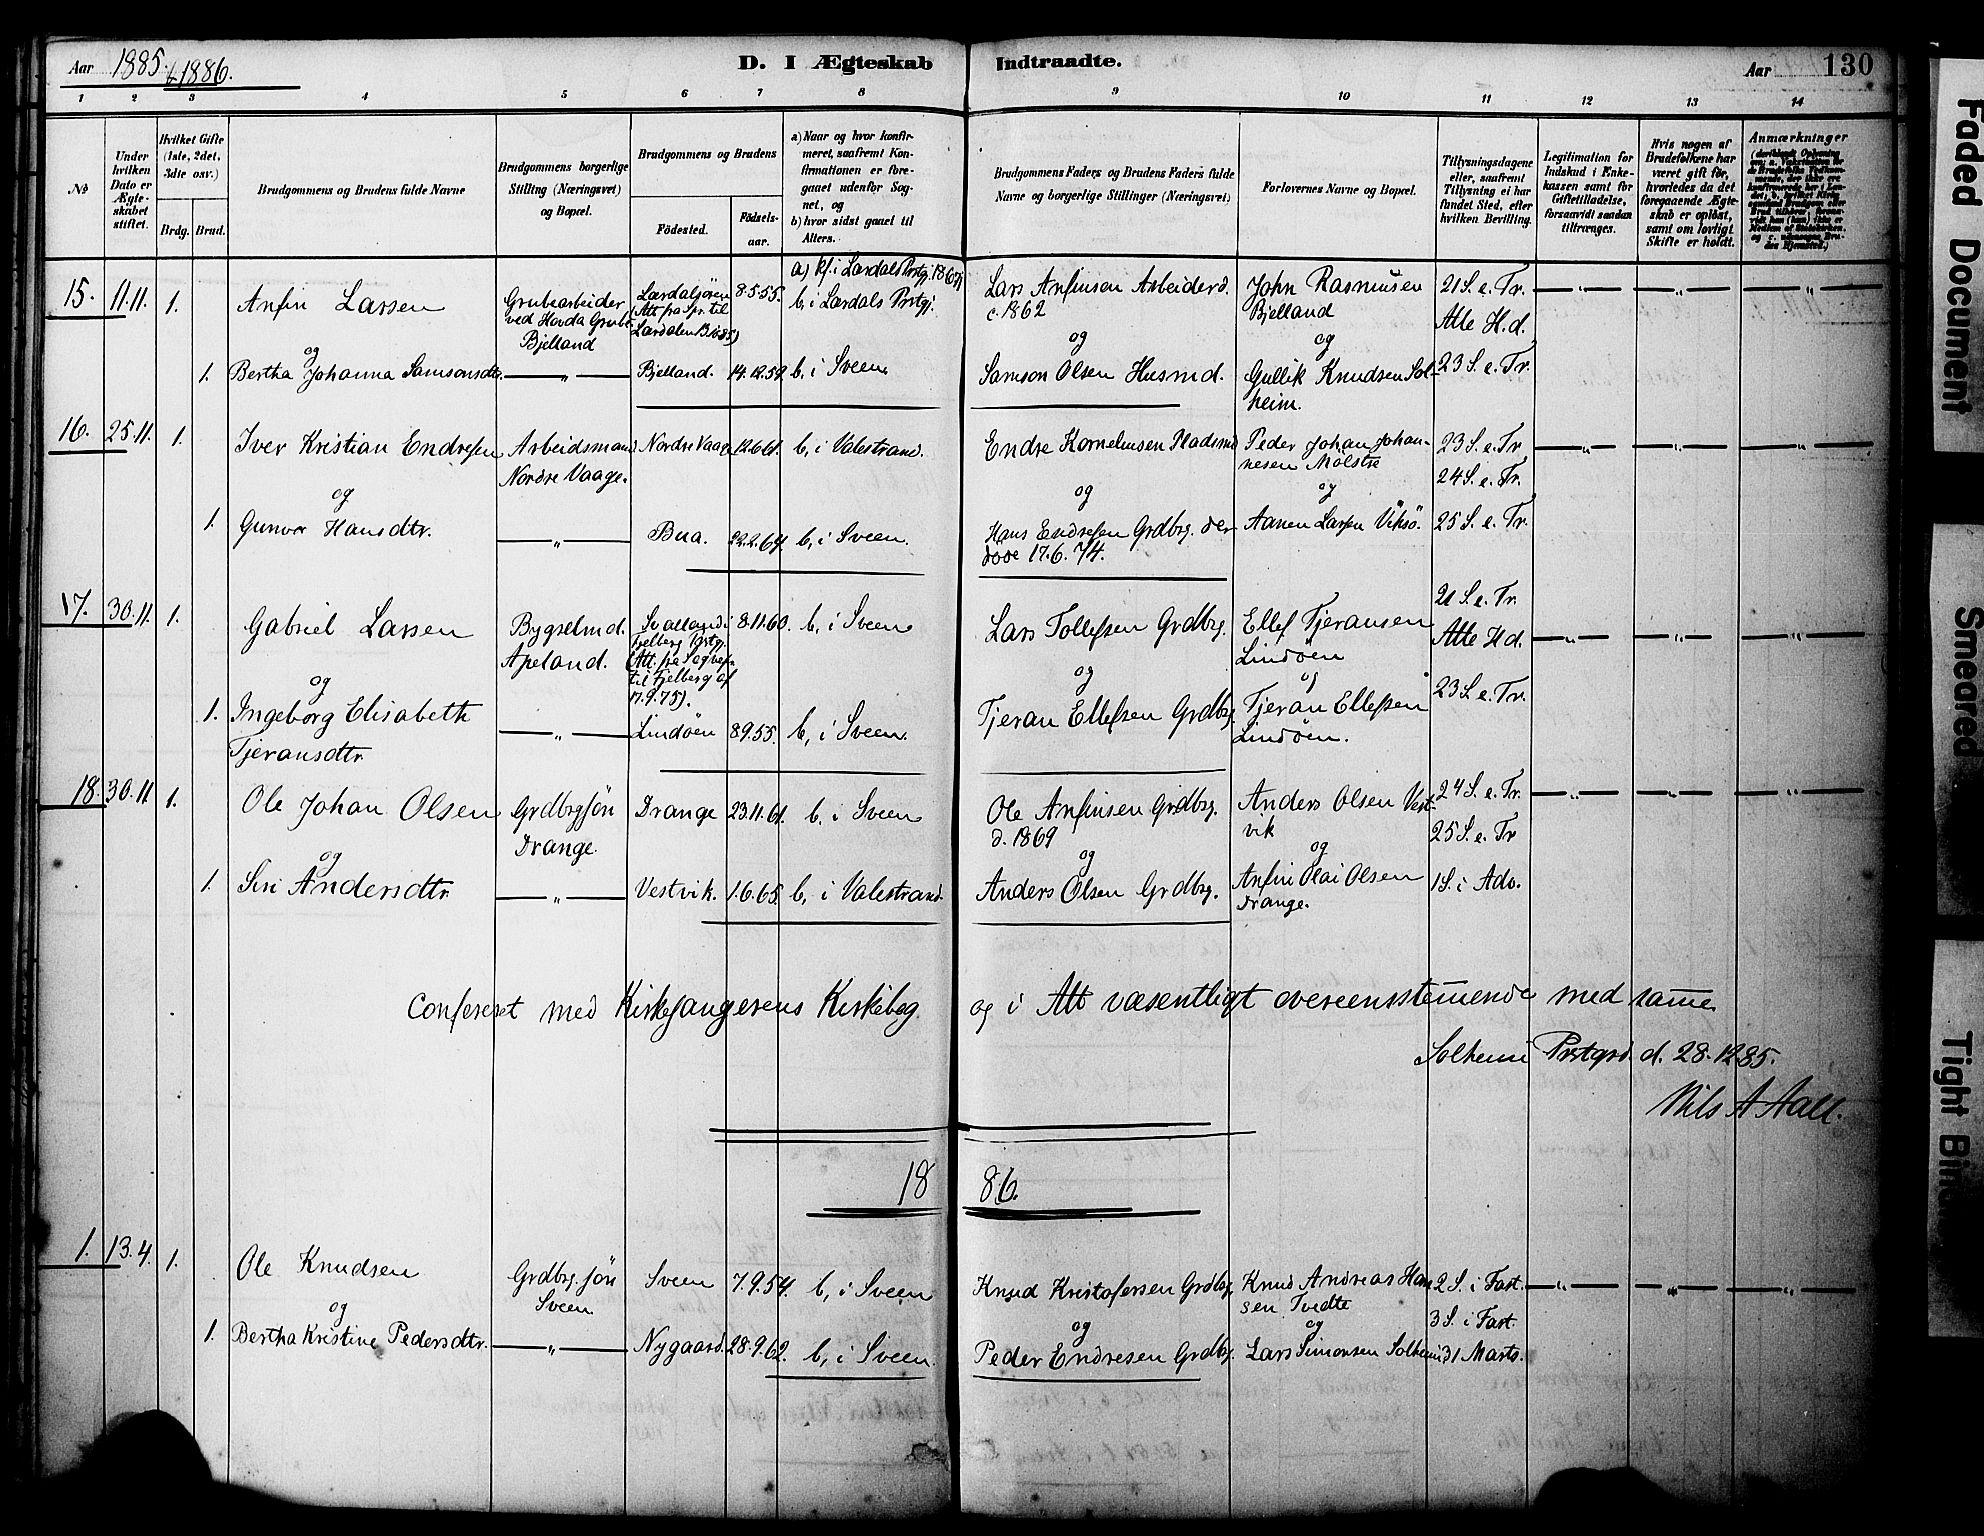 Aar 1885 & 1886.
D. I Ægteskab Indtraadte.
Aar 130
1 2 3 4 5 6 7 8 9 10 11 12 13 14
No
Under hvilken Dato er Ægteskabet stiftet.
Hvilket Gifte (1ste, 2det, 3die osv.)
Brdg. Brud.
Brudgommens og Brudens fulde Navne
Brudgommens borgerlige Stilling (Næringsvei) og Bopæl.
Brudgommens og Brudens
Fødested.
Fødselsaar.
a) Naar og hvor konfirmeret, saafremt Konfirmationen er foregaaet udenfor Sognet, og
b) hvor sidst gaaet til Alters.
Brudgommens Faders og Brudens Faders fulde Navne og borgerlige Stillinger (Næringsvei)
Forlovernes Navne og Bopæl.
Tillysningsdagene eller, saafremt Tillysning ei har fundet Sted, efter hvilken Bevilling.
Legitimation for Indskud i Enkekassen samt for Giftetilladelse, forsaavidt saadan tiltrænges.
Hvis nogen af Brudefolkene har været gift før, hvorledes da det foregaaende Ægteskab er opløst, samt om lovligt Skifte er holdt.
Anmærkninger
15. 11.11. 1. Anfin Larsen
Grubearbeider ved Hovda Grube Bjelland
Lærdalsören (Att. fra Spr. til Lærdalen
8.5.55.
a) kf. i Lærdals Prstgj. 18
b, i Lærdals Prstgj.
Lars Anfinson Arbeider d. c. 1862
John Rasmusen Bjelland
21 S. e. Tr.
Alle H.d.
og og og
1. Bertha Johanna Samsonsdtr. — „ — Bjelland. 14.12.59. b, i Sveen
Samson Olsen Husmd. Gullik Knudsen Solheim. 23 S. e. Tr.
16. 25.11. 1. Iver Kristian Endresen
Arbeidsmand Nordre Vaage.
Nordre Vaage 12.6.61. b, i Valestrand.
Endre Korneliusen Pladsmd
Peder Johan Johannesen Mölstre
23 S. e. Tr
24 S. e. Tr.
og og og
1. Gunvor Hansdtr. — „ — Bua. 22.2.64. b, i Sveen.
Hans Endresen Grdbrg. der döde 17.6.74.
Aanen Larsen Viksö. 25 S. e. Tr.
17. 30.11 1. Gabriel Larsen
Bygselmd. Apeland.
Svalland i Fjelberg Prstgj. (Att. fra Sogne til Fjelberg af 17.9.75).
8.11.60. b, i Sveen
Lars Tollefsen Grdbrg.
Ellef Tjeransen Lindöen
21 S. e. Tr.
Alle H.d.
og og og
1. Ingeborg Elisabeth Tjeransdtr. — „ — Lindöen 8.9.55. b, i Sveen.
Tjeran Ellefsen Grdbrg. Tjeran Ellefsen Lindöen. 23 S. e. Tr.
18. 30.11 1. Ole Johan Olsen
Grdbrgsjön Drange.
Drange 23.11.61. b, i Sveen
Ole Anfinsen Grdbrg. d. 1869
Anders Olsen Vestvik
24 S. e. Tr.
25 S. e. Tr
og og og
1. Siri Andersdtr. — „ — Vestvik. 1.6.65. b, i Valestrand.
Anders Olsen Grdbrg. Anfin Olai Olsen Drange. 1 S. i Adv.
Confereret med Kirkesangerens Kirkebog og i Alt væsentligt overeensstemende med same
Solheim Prstgrd. d. 28.12.85.
Nils A Aall.
1886.
1. 13.4 1. Ole Knudsen
Grdbrg. sön Sveen
Sveen 7.9.54. b, i Sveen
Knud Kristofersen Grdbrg.
Knud Andreas Hansen Tvedte
2 S. i Fast.
3 S. i Fast.
og og og
1. Bertha Kristine Pedersdtr. — „ — Nygaard. 28.9.62. b, i Sveen.
Peder Endresen Grdbrg. Lars Simonsen Solheim 31 Marts.
Faded Document
Smeared
Tight Bin